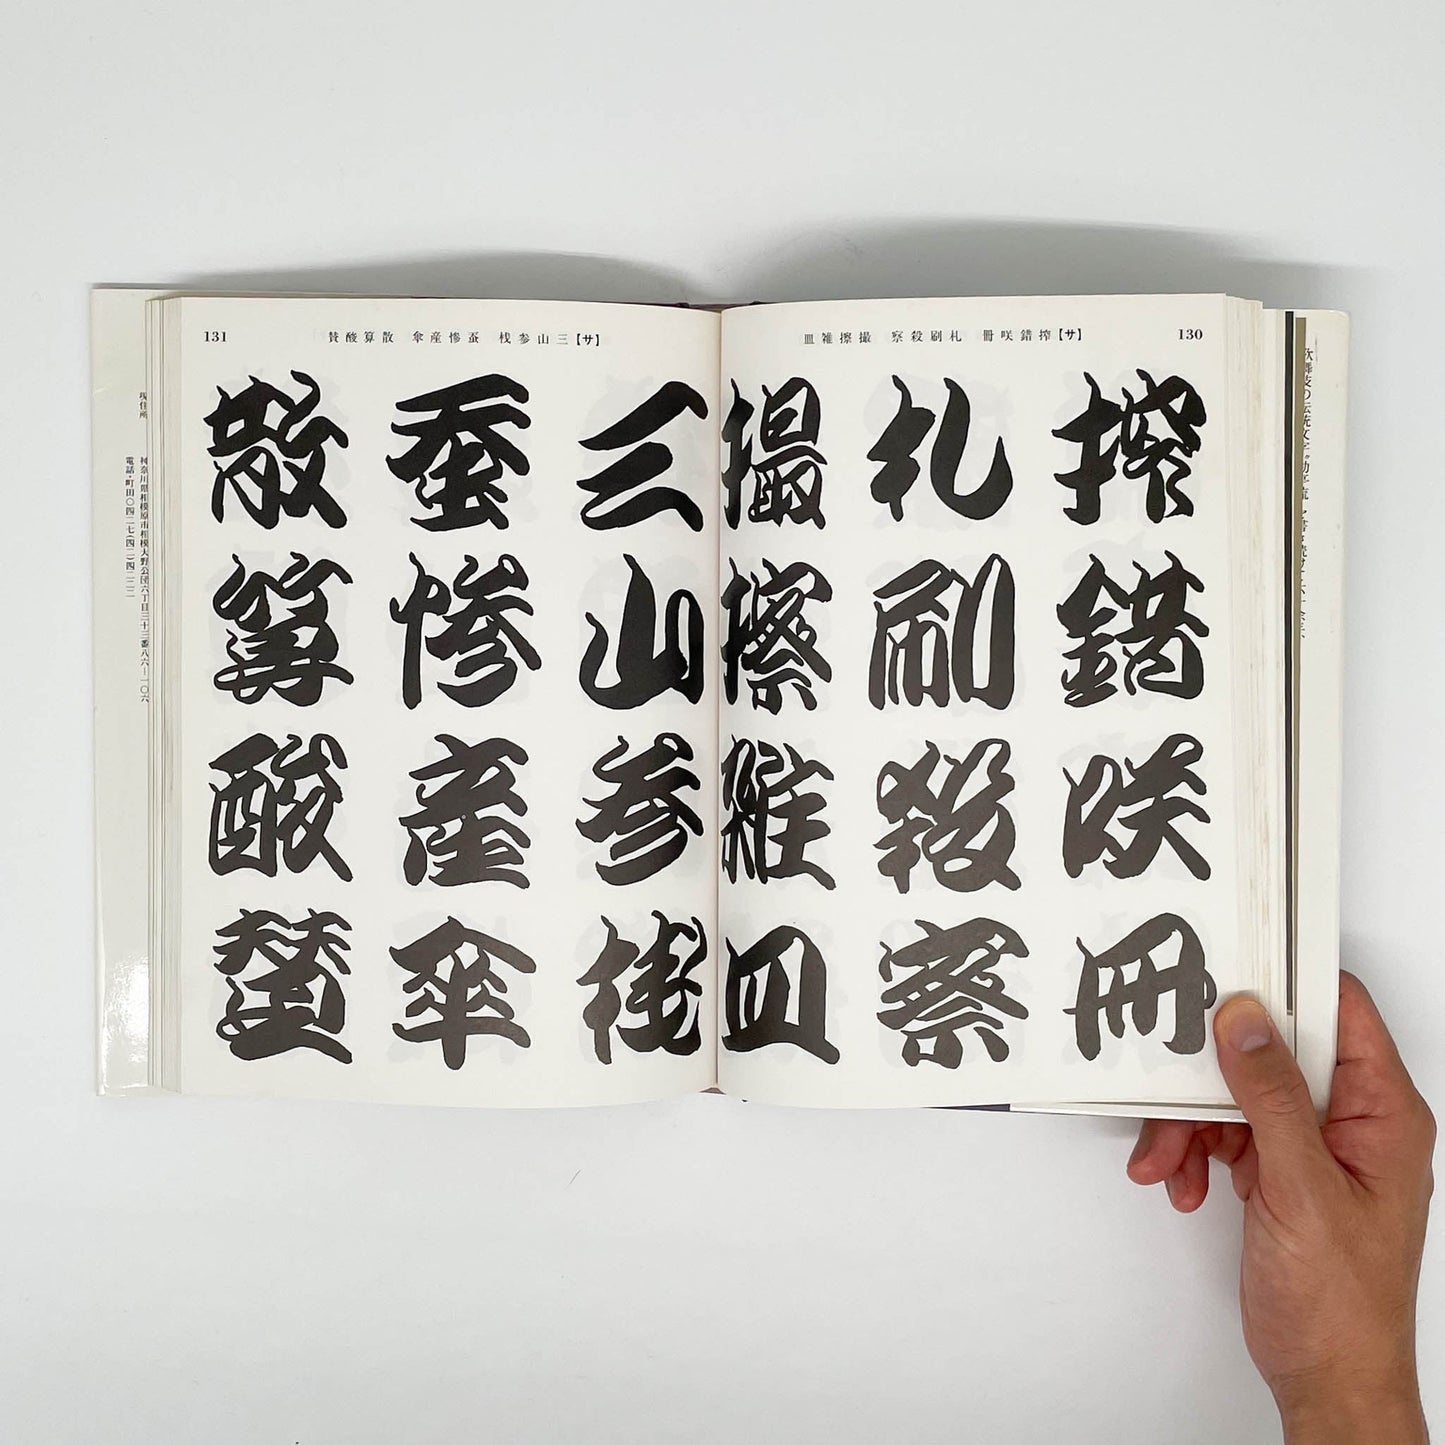 130
【サ】搾錯咲冊 札刷殺察 撮擦雑皿
搾錯咲冊
札刷殺察
撮擦雑皿
131
【サ】三山参桟 蚕惨産傘 散算酸賛
三山参桟
蚕惨産傘
散算酸賛
現住所
神奈川県相模原市相模大野公団六丁目三十三番八六―一〇六
電話・町田〇四二七(四二)四二二二